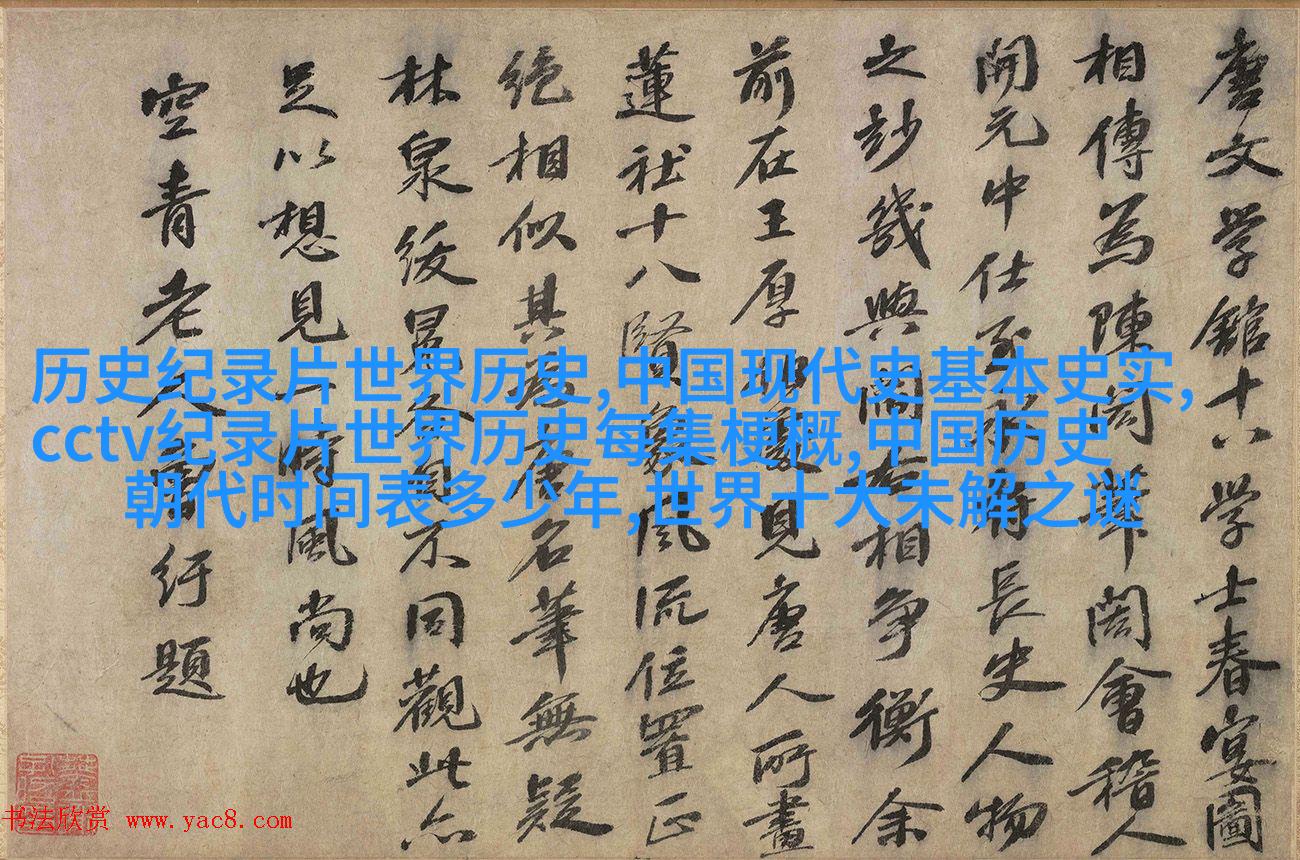 唐文学舘十八学士春宴圖
相傳為陳閎筆閎會稽人
開元中仕至府長史人物
之妙幾與閻右相争衡余
前在王厚見唐人所畫
蓮社十八賢象風流位置正
絶相似其為唐名筆無疑
林泉綬冕各自不同觀此亦
足以想見一時風尚也
空青老人曾紆題
历史纪录片世界历史,中国现代史基本史实,
cctv纪录片世界历史每集梗概,中国历史
朝代时间表多少年,世界十大未解之谜
书法欣赏 www.yac8.com